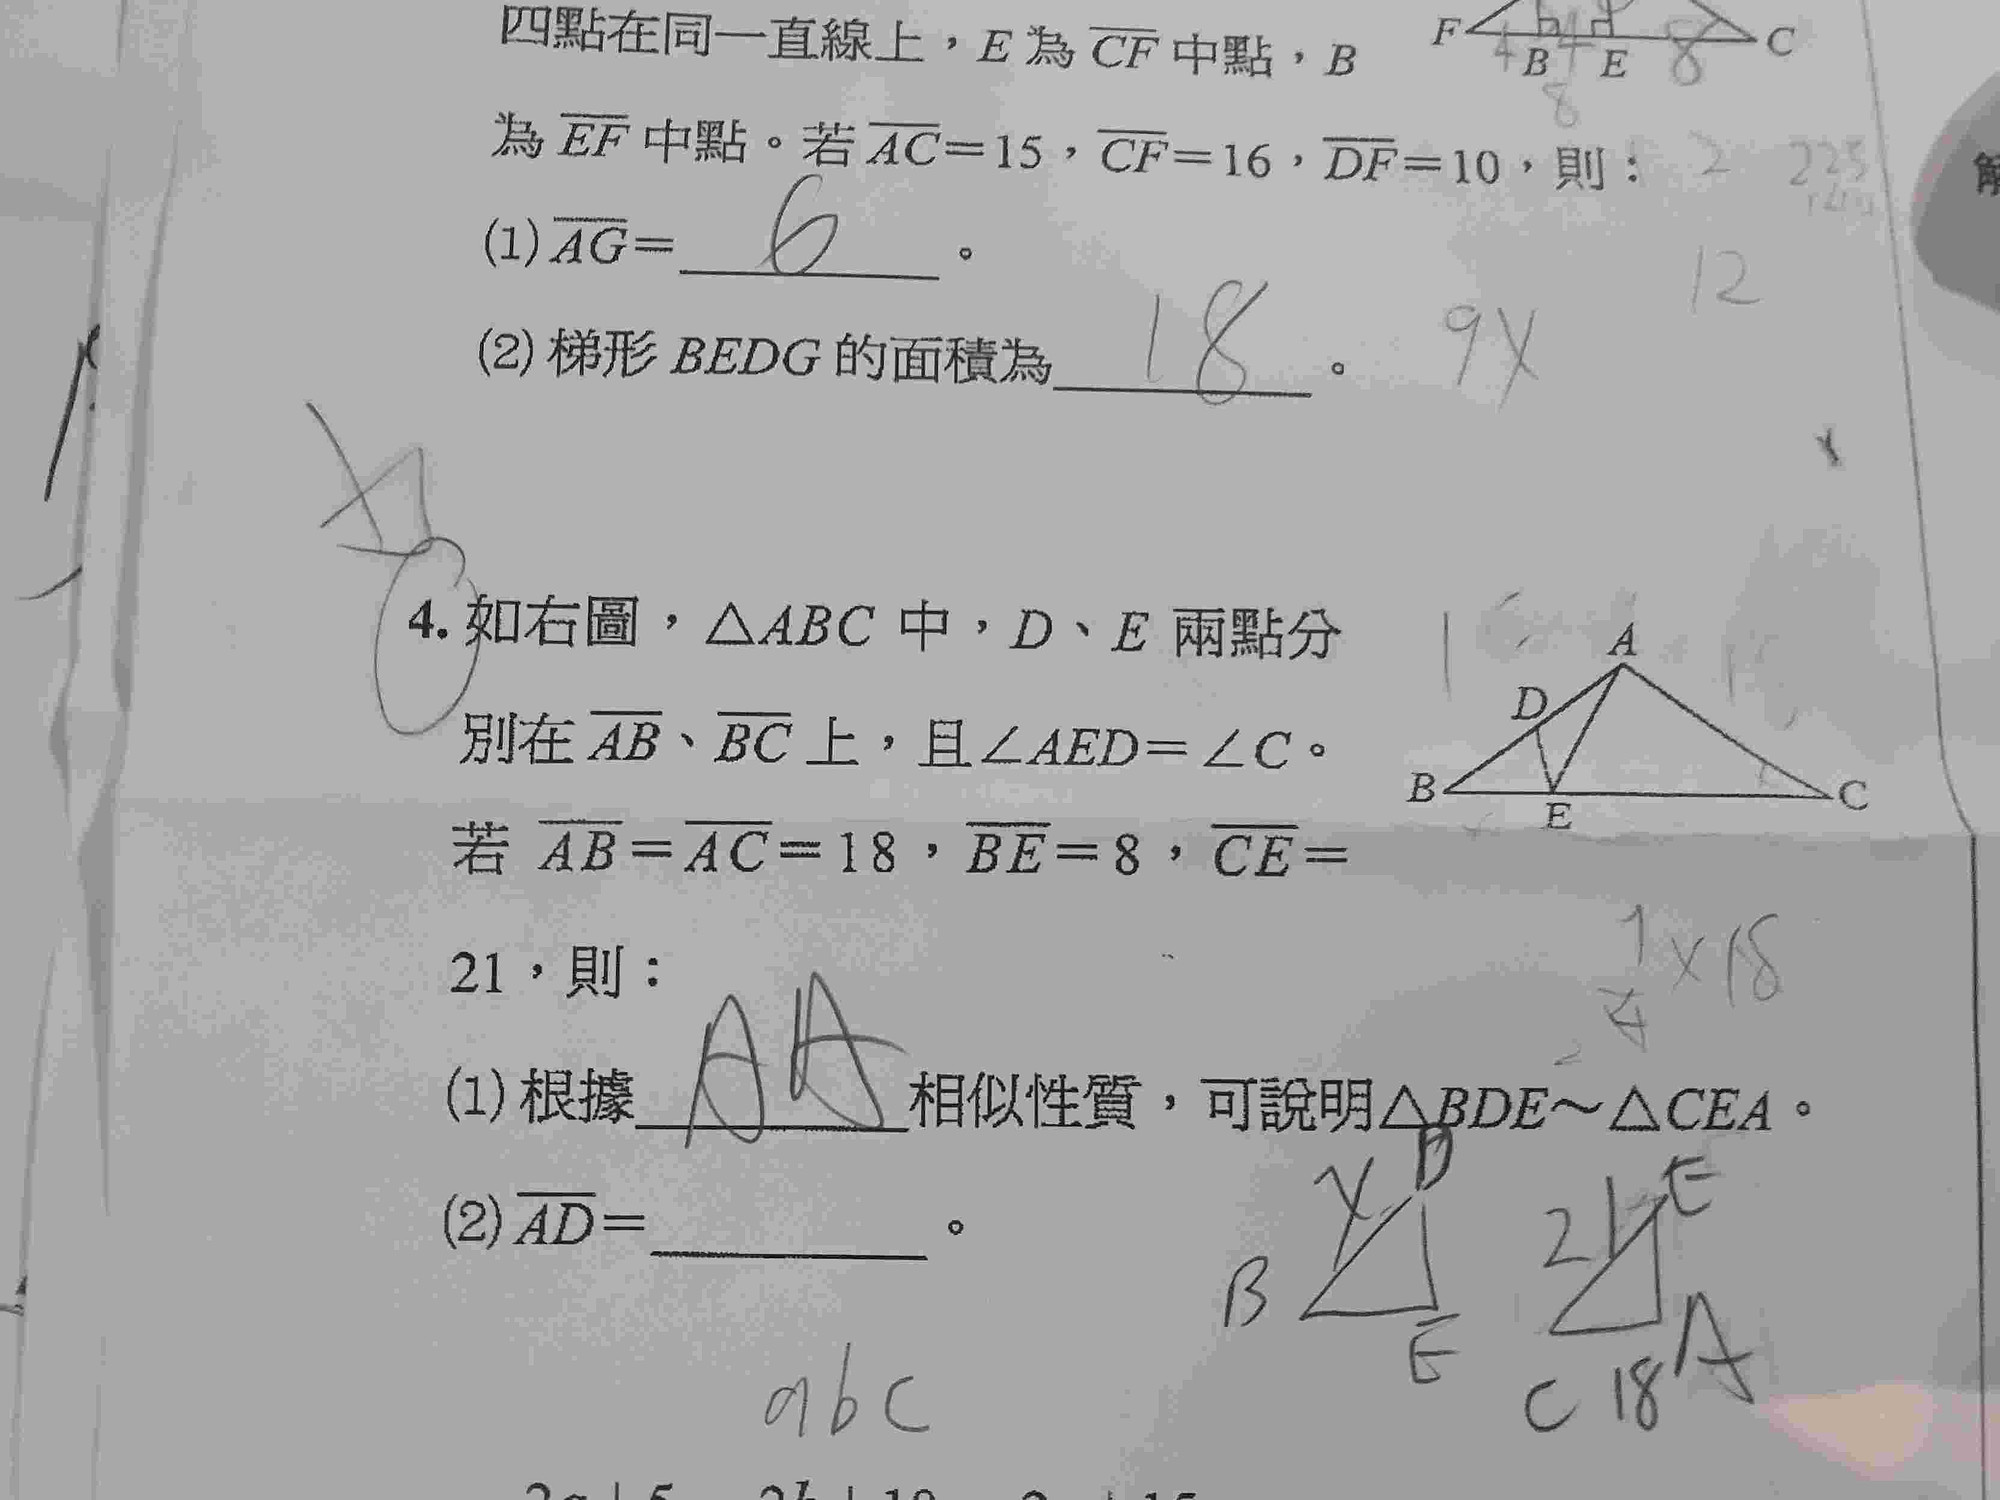 四點在同一直線上,E 為 CF 中點,B
F B E C
4 4 8
8
為 EF 中點。若 AC=15,CF=16,DF=10,則:
2 225
(1) AG= 6 。
12
(2) 梯形 BEDG 的面積為 18 。 9X
4. 如右圖,△ABC 中,D、E 兩點分
別在 AB、BC 上,且∠AED=∠C。
A
D
B E C
若 AB=AC=18,BE=8,CE=
21,則:
×18
(1) 根據 AA 相似性質,可說明△BDE~△CEA。
(2) AD= 。
X D
B E
21 E
C 18 A
abc